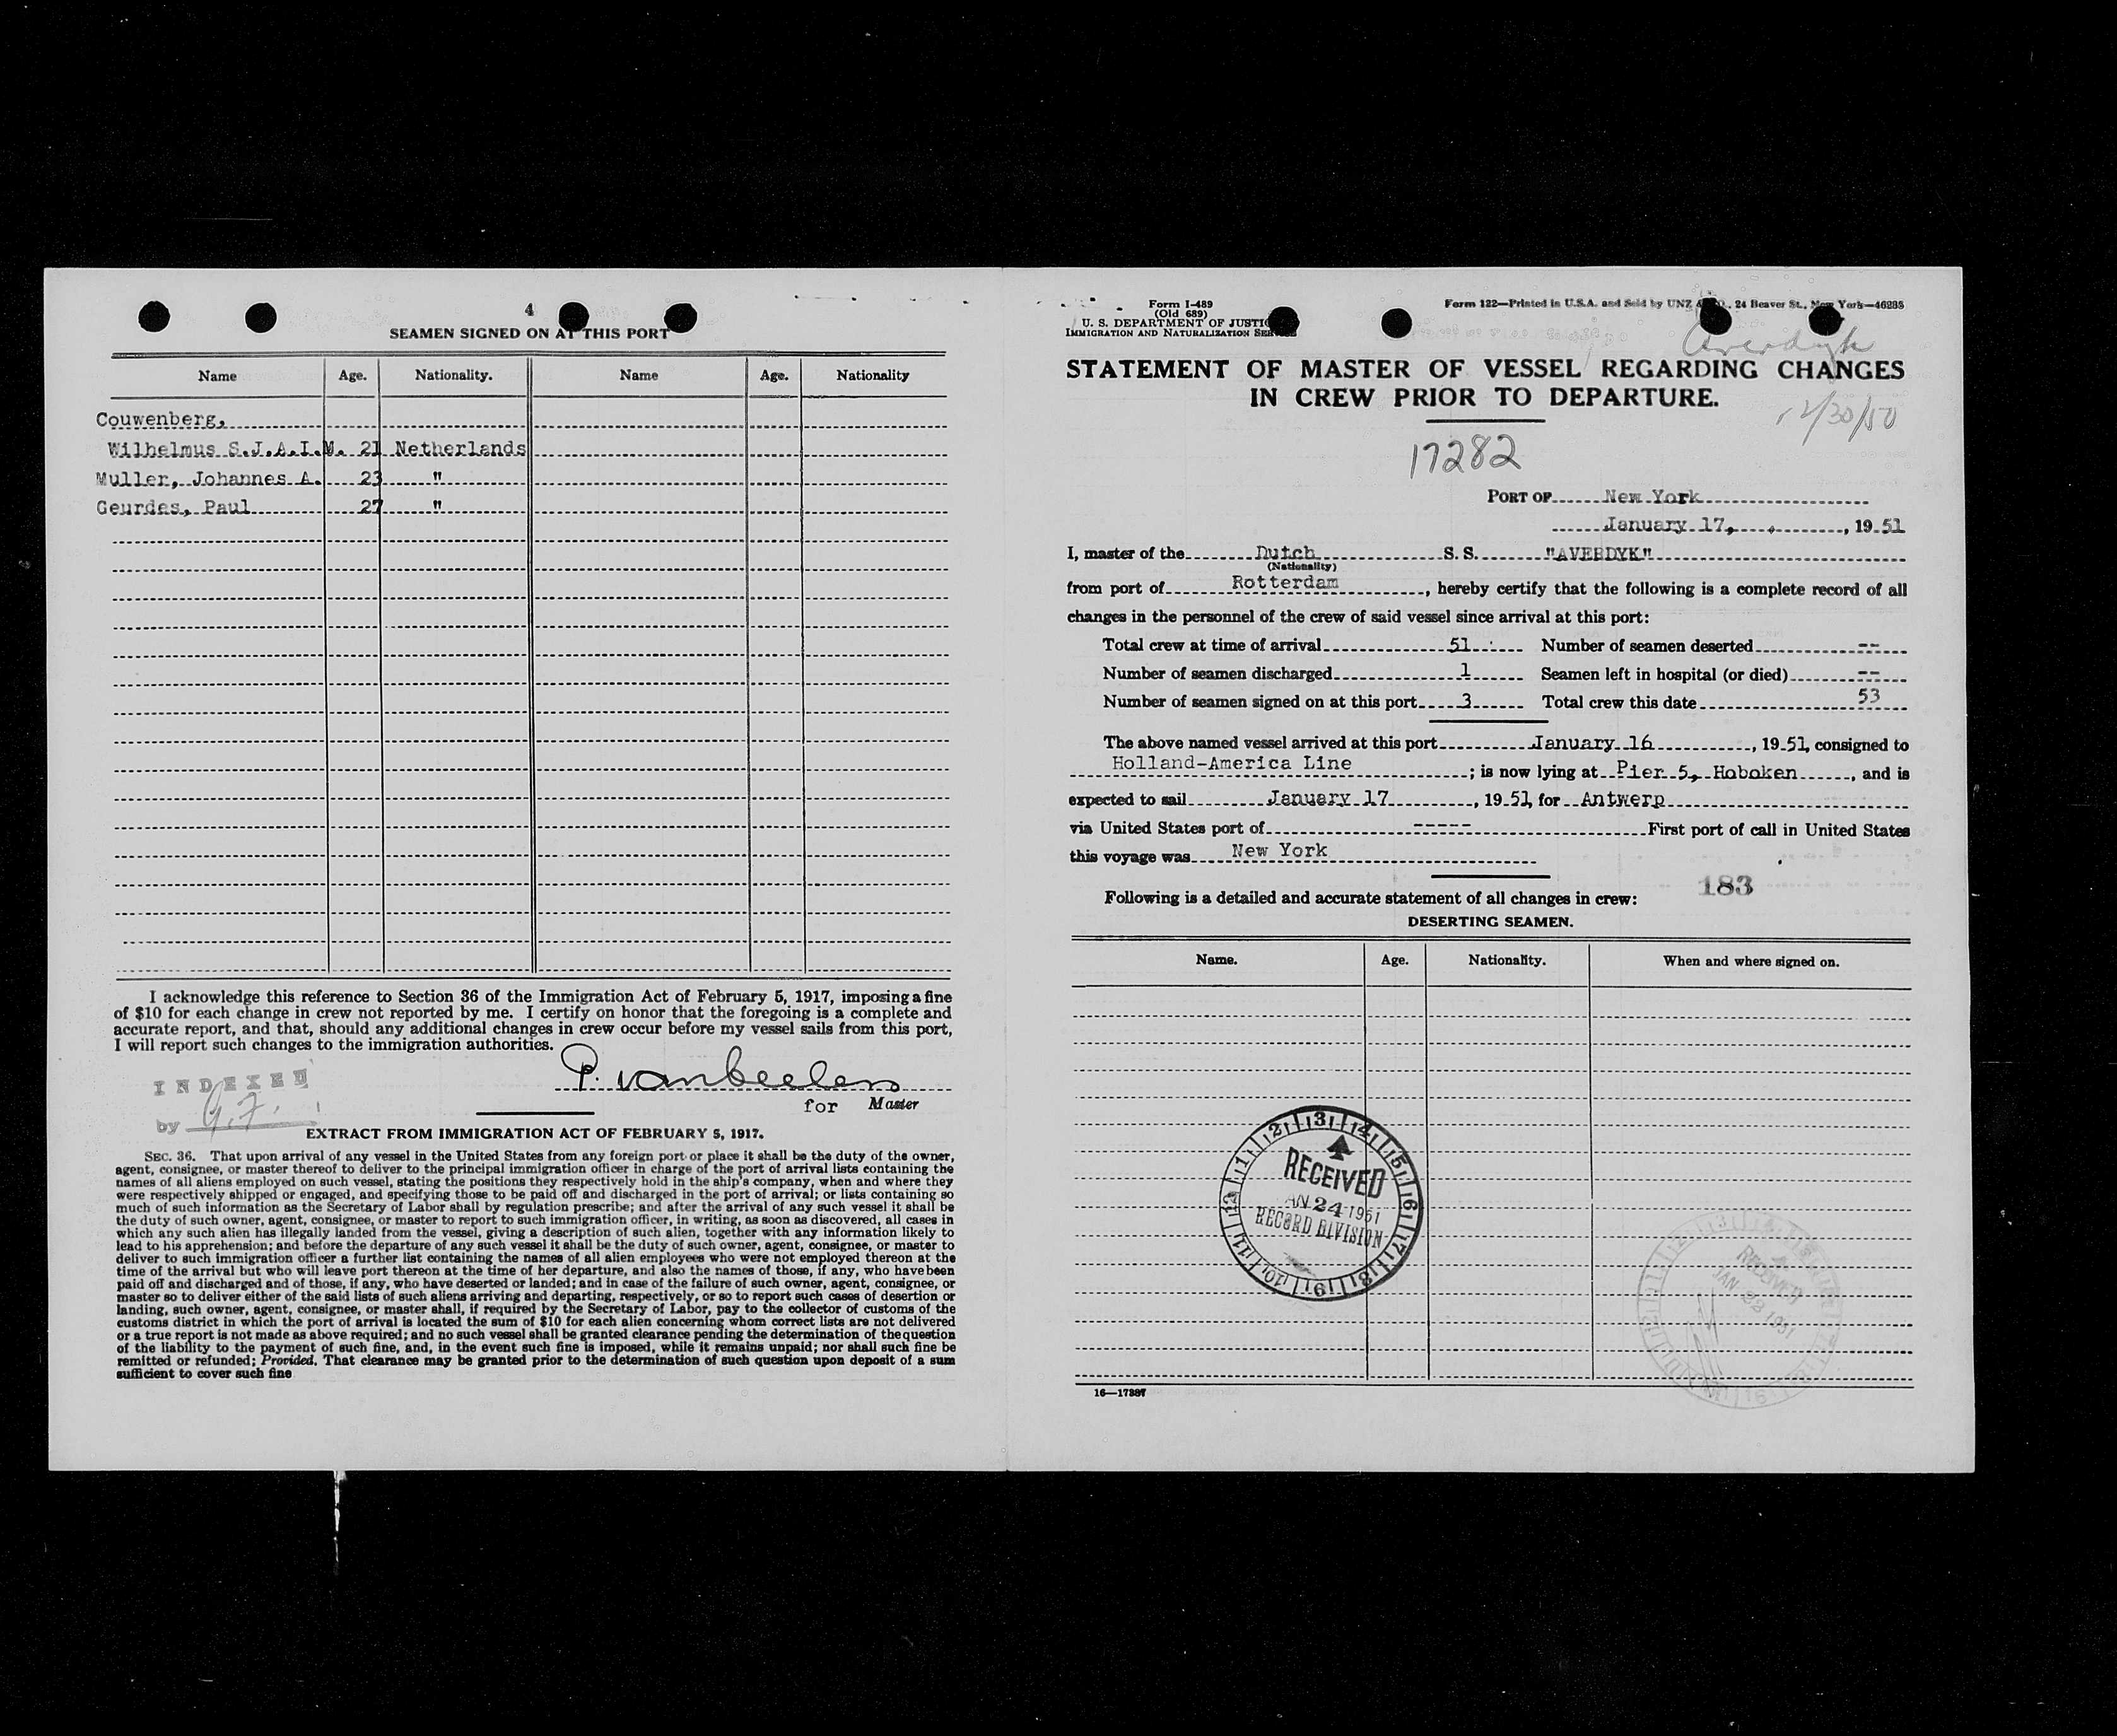 4
SEAMEN SIGNED ON AT THIS PORT
Name Age. Nationality. Name Age. Nationality
Couwenberg,
Wilhelmus S.J.A.I.M. 21 Netherlands
Muller, Johannes A. 23 "
Geurdes, Paul 27 "
I acknowledge this reference to Section 36 of the Immigration Act of February 5, 1917, imposing a fine
of $10 for each change in crew not reported by me. I certify on honor that the foregoing is a complete and
accurate report, and that, should any additional changes in crew occur before my vessel sails from this port,
I will report such changes to the immigration authorities.
P. van Beelen
for Master
INDEXED
by G.F.
EXTRACT FROM IMMIGRATION ACT OF FEBRUARY 5, 1917.
SEC. 36. That upon arrival of any vessel in the United States from any foreign port or place it shall be the duty of the owner,
agent, consignee, or master thereof to deliver to the principal immigration officer in charge of the port of arrival lists containing the
names of all aliens employed on such vessel, stating the positions they respectively hold in the ship's company, when and where they
were respectively shipped or engaged, and specifying those to be paid off and discharged in the port of arrival; or lists containing so
much of such information as the Secretary of Labor shall by regulation prescribe; and after the arrival of any such vessel it shall be
the duty of such owner, agent, consignee, or master to report to such immigration officer, in writing, as soon as discovered, all cases in
which any such alien has illegally landed from the vessel, giving a description of such alien, together with any information likely to
lead to his apprehension; and before the departure of any such vessel it shall be the duty of such owner, agent, consignee, or master to
deliver to such immigration officer a further list containing the names of all alien employees who were not employed thereon at the
time of the arrival but who will leave port thereon at the time of her departure, and also the names of those, if any, who have been
paid off and discharged and of those, if any, who have deserted or landed; and in case of the failure of such owner, agent, consignee, or
master so to deliver either of the said lists of such aliens arriving and departing, respectively, or so to report such cases of desertion or
landing, such owner, agent, consignee, or master shall, if required by the Secretary of Labor, pay to the collector of customs of the
customs district in which the port of arrival is located the sum of $10 for each alien concerning whom correct lists are not delivered
or a true report is not made as above required; and no such vessel shall be granted clearance pending the determination of the question
of the liability to the payment of such fine, and, in the event such fine is imposed, while it remains unpaid; nor shall such fine be
remitted or refunded; Provided, That clearance may be granted prior to the determination of such question upon deposit of a sum
sufficient to cover such fine
Form I-489
(Old 689)
U. S. DEPARTMENT OF JUSTICE
IMMIGRATION AND NATURALIZATION SERVICE
Form 122—Printed in U.S.A. and Sold by UNZ & CO., 24 Beaver St., New York—46288
Averdyk
STATEMENT OF MASTER OF VESSEL REGARDING CHANGES
IN CREW PRIOR TO DEPARTURE.
12/30/50
17282
PORT OF New York
January 17, , 1951
I, master of the Dutch S. S. "AVERDYK"
(Nationality)
from port of Rotterdam , hereby certify that the following is a complete record of all
changes in the personnel of the crew of said vessel since arrival at this port:
Total crew at time of arrival 51 Number of seamen deserted --
Number of seamen discharged 1 Seamen left in hospital (or died) --
Number of seamen signed on at this port 3 Total crew this date 53
The above named vessel arrived at this port January 16 , 1951, consigned to
Holland-America Line ; is now lying at Pier 5, Hoboken , and is
expected to sail January 17 , 1951, for Antwerp
via United States port of ----- First port of call in United States
this voyage was New York
183
Following is a detailed and accurate statement of all changes in crew:
DESERTING SEAMEN.
Name. Age. Nationality. When and where signed on.
1 2 3 4 5 6 7 8 9 10 11 12
RECEIVED
JAN 24 1951
RECORD DIVISION
RECEIVED
JAN 23 1951
16—17387